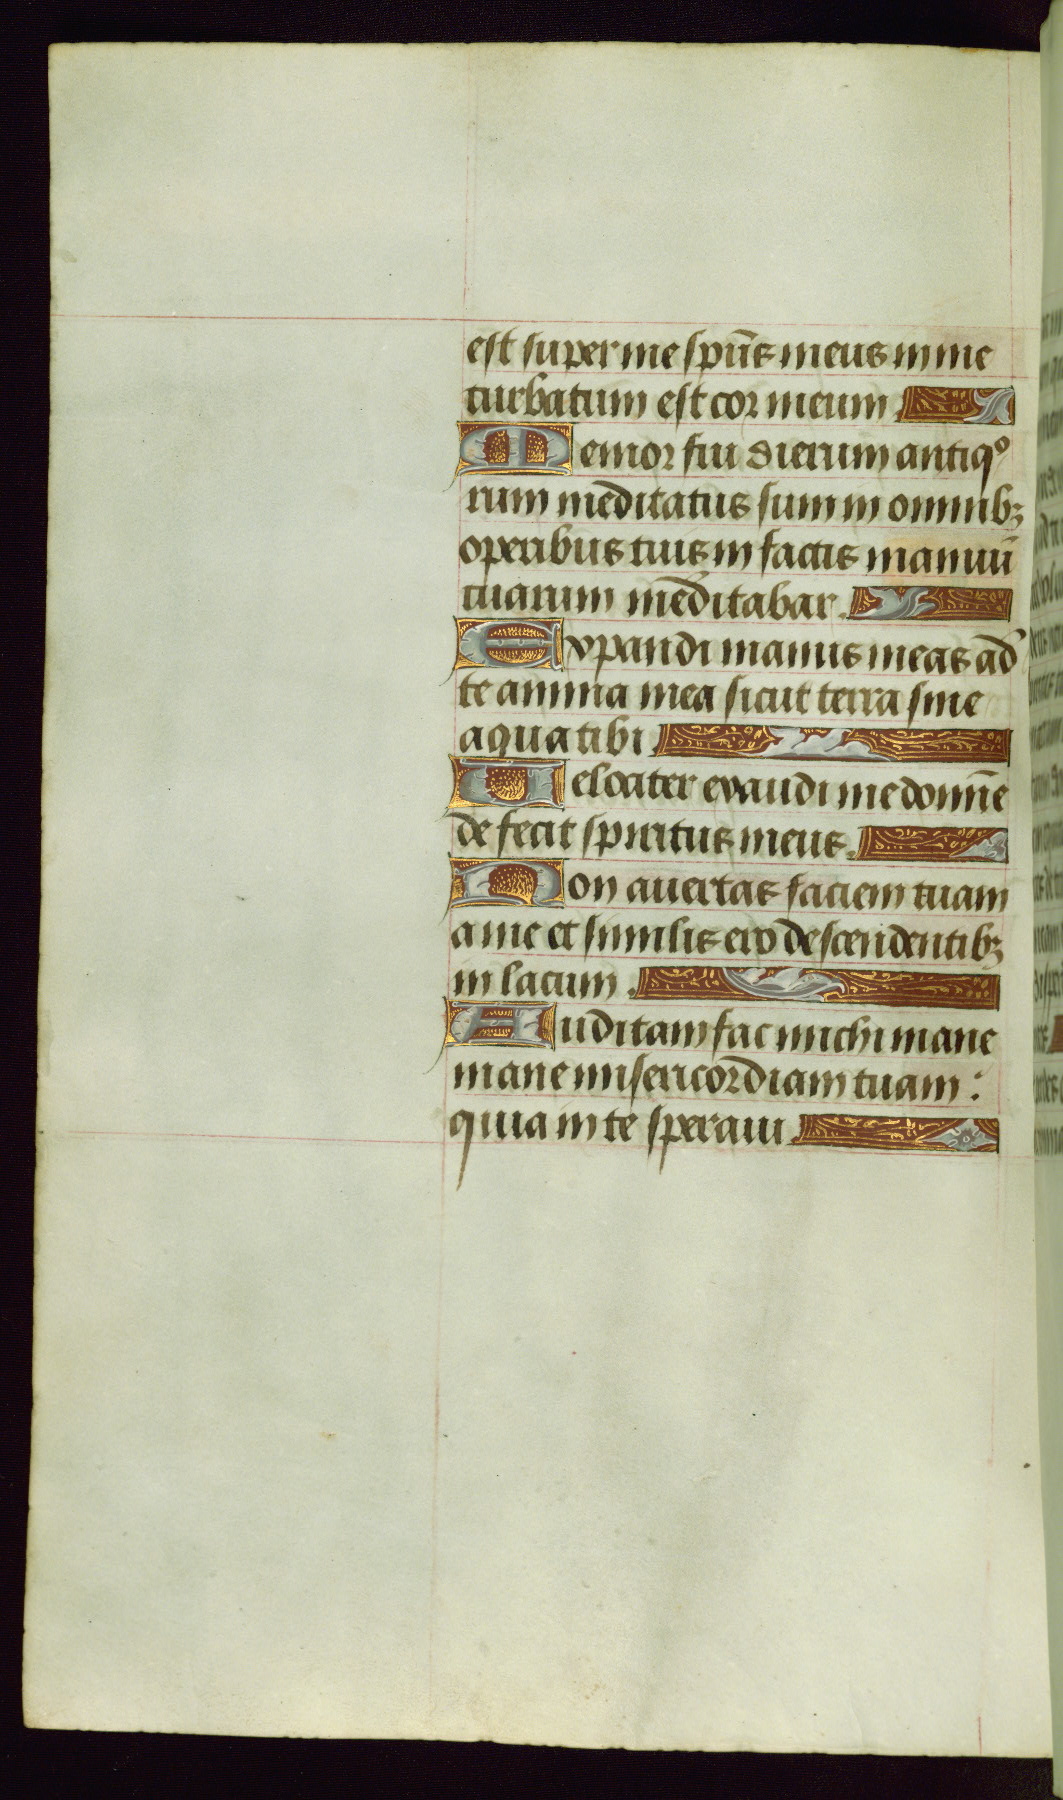 est super me spūs meus in me
turbatum est cor meum.
Memor fui dierum antiqo
rum meditatus sum in omnibꝫ
operibus tuis in factis manuū
tuarum meditabar.
Expandi manus meas ad
te anima mea sicut terra sine
aqua tibi.
Velociter exaudi me domine
defecit spiritus meus.
Non avertas faciem tuam
a me et similis ero descendentibꝫ
in lacum.
Auditam fac michi mane
mane misericordiam tuam:
quia in te speraui.